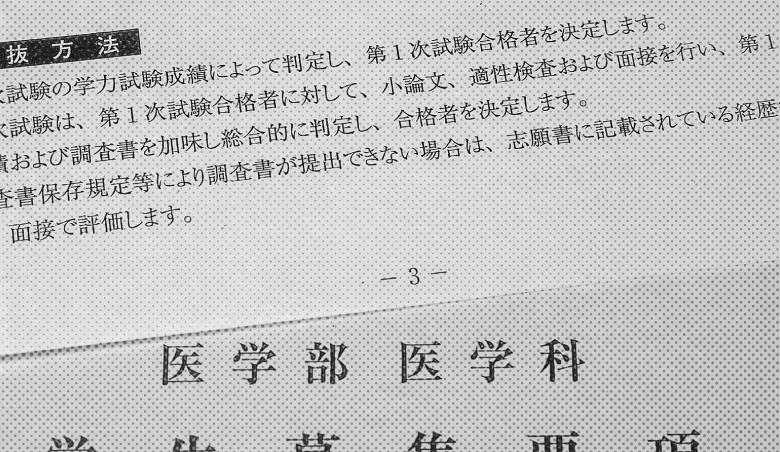 抜方法
試験の学力試験成績によって判定し、第1次試験合格者を決定します。
試験は、第1次試験合格者に対して、小論文、適性検査および面接を行い、第1
および調査書を加味し総合的に判定し、合格者を決定します。
査書保存規定等により調査書が提出できない場合は、志願書に記載されている経歴
面接で評価します。
－3－
医学部 医学科
学生募集要項